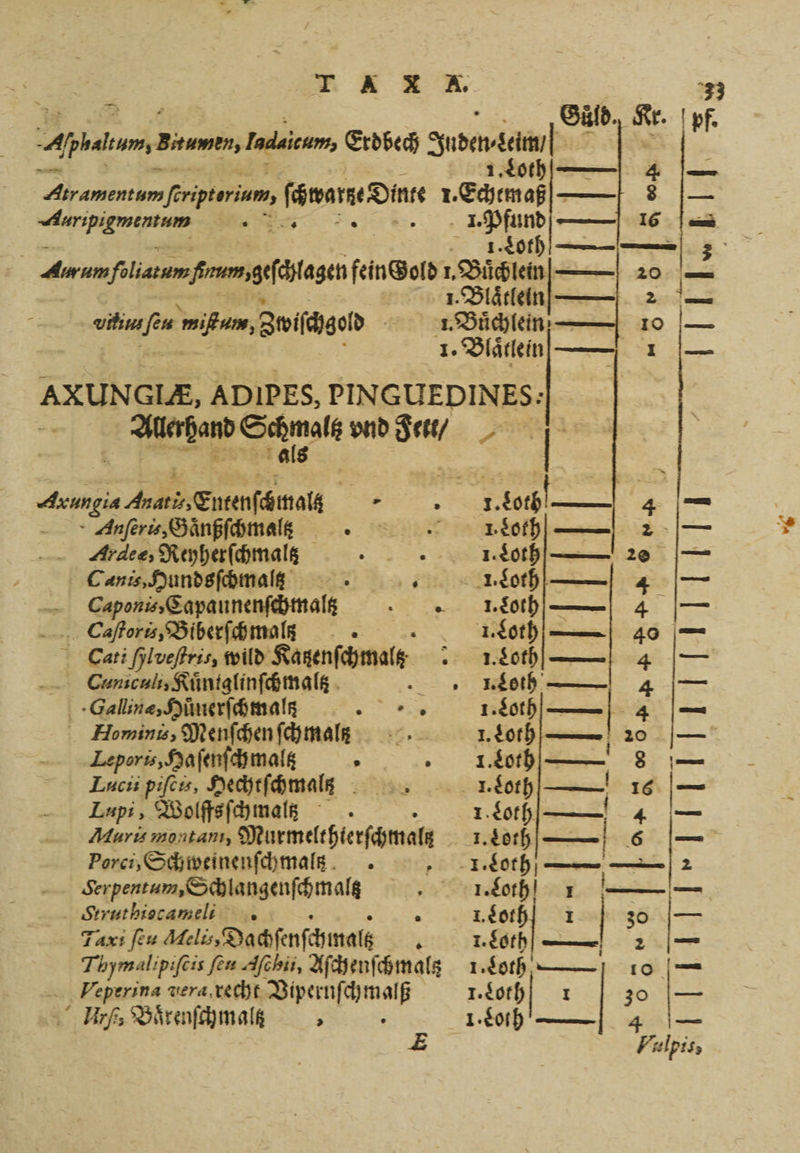 TAXA. 33
Gülð. Kr. pf.
Asphaltum, Bitumen, Iudaicum, Erdbech Juden-Leim/
1. Loth — 4 —
Atramentum scriptorium, schwartze Dinte 1. Echtmaß — 8 —
Auripigmentum . . . . 1. Pfund — 16 —
1. Loth — — 3
Aurum foliatum finum, geschlagen fein Gold 1. Büchlein — 20 —
1. Blätlein — 2 —
vitius seu mistum, Zwischgold 1. Büchlein — 10 —
1. Blätlein — 1 —
AXUNGIÆ, ADIPES, PINGUEDINES:
Allerhand Schmaltz vnd Fett/
als
Axungia Anatis, Entenschmaltz . . 1. Loth — 4 —
Anseris, Gänßschmaltz . . 1. Loth — 2 —
Ardeæ, Reyherschmaltz . . 1. Loth — 20 —
Canis, Hundsschmaltz . . 1. Loth — 4 —
Caponis, Capaunenschmaltz . . 1. Loth — 4 —
Castoris, Biberschmaltz . . 1. Loth — 40 —
Cati sylvestris, wild Katzenschmaltz . 1. Loth — 4 —
Cuniculi, Küniglinschmaltz . . 1. Loth — 4 —
Gallinæ, Hünerschmaltz . . . 1. Loth — 4 —
Hominis, Menschen schmaltz . 1. Loth — 20 —
Leporis, Hasenschmaltz . . 1. Loth — 8 —
Lucii piscis, Hechtschmaltz . . 1. Loth — 16 —
Lupi, Wolffsschmaltz . . 1. Loth — 4 —
Muris montani, Murmelthierschmaltz 1. Loth — 6 —
Porci, Schweinenschmaltz . . 1. Loth — — 2
Serpentum, Schlangenschmaltz . 1. Loth 1 — —
Struthiocameli . . . . 1. Loth 1 30 —
Taxi seu Melis, Dachsenschmaltz . 1. Loth — 2 —
Thymali piscis seu Aschii, Aschenschmaltz 1. Loth — 10 —
Veperina vera, recht Vipernschmaltz 1. Loth 1 30 —
Ursi, Bärenschmaltz , . 1. Loth — 4 —
E Vulpis,